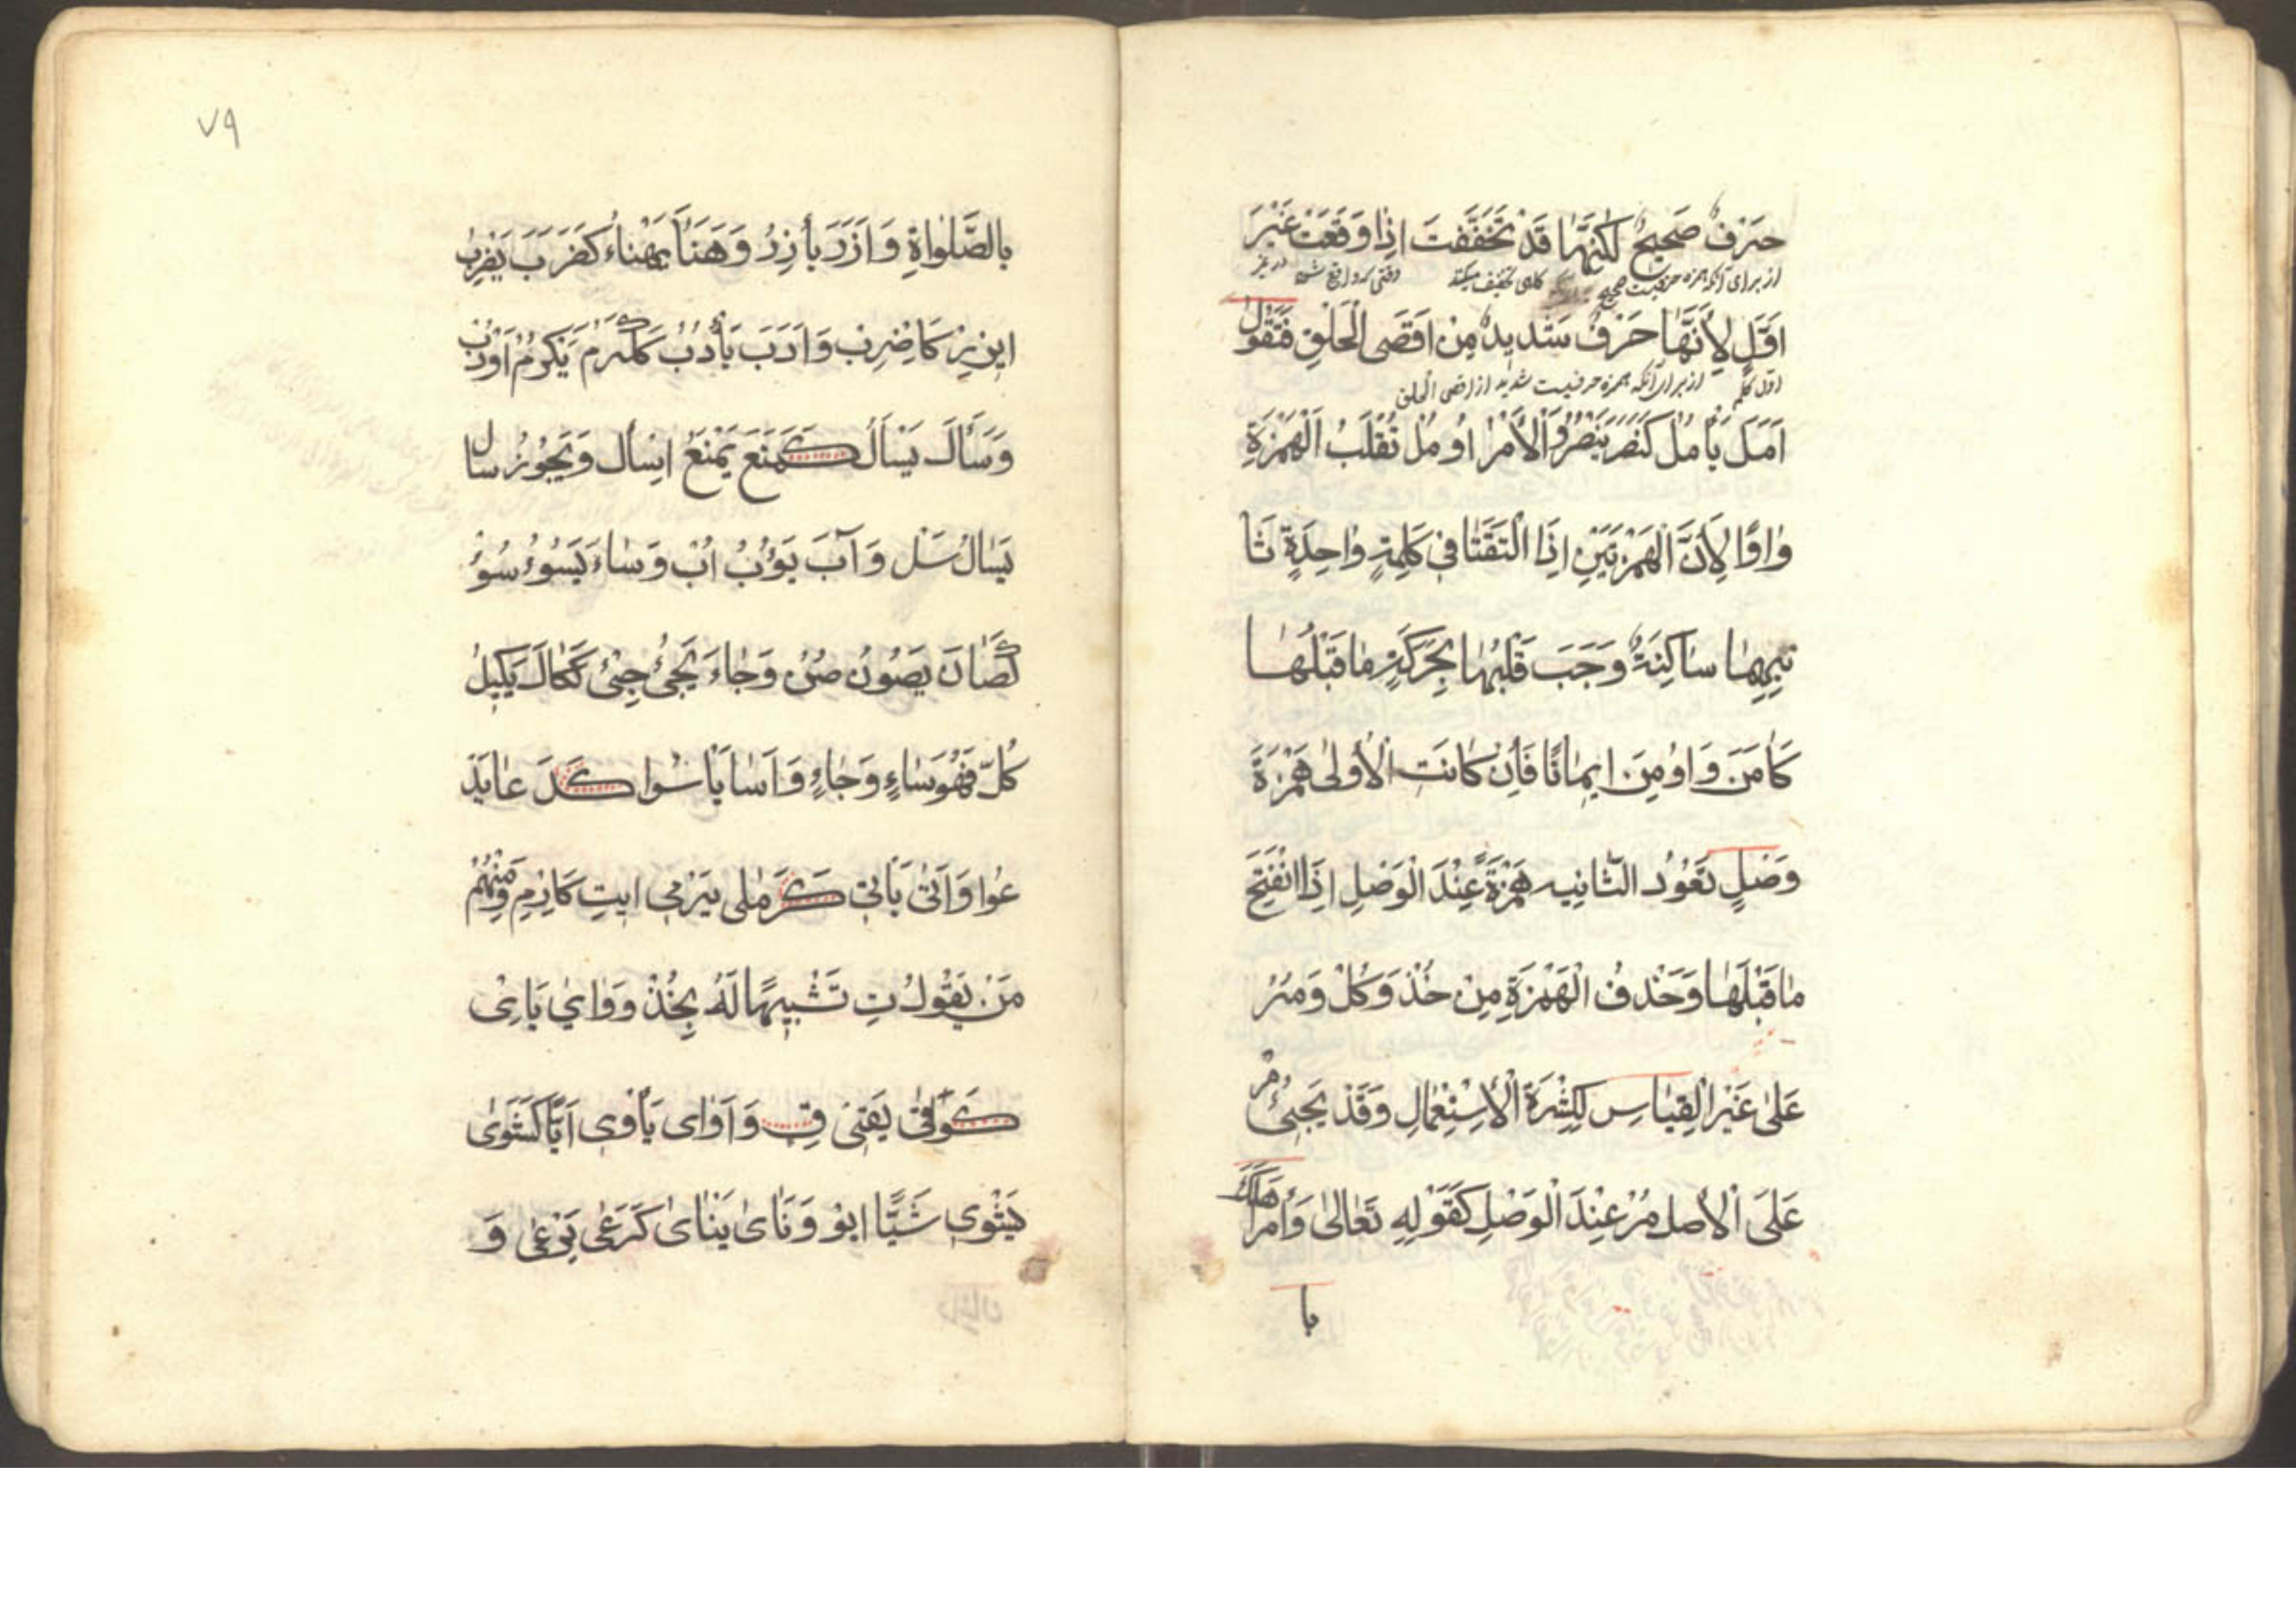 حَرْفٌ صَحِيحٌ لٰكِنَّهَا قَدْ تُخَفَّفَتَ اِذَا وَقَعَتْ غَيْرَ
از برای آنکه همزه حرفیست صحیح گاهی تخفیف میکند وقتی که واقع شود در غیر
اَوَّلٍ لِأَنَّهَا حَرْفٌ شَدِيدٌ مِنْ اَقْصَى الْحَلْقِ فَتَقُولُ
اول کلمه از برای آنکه همزه حرفیست شدید از اقصی الحلق
اَمَلَ يَأْمُلُ كَنَصَرَ يَنْصُرُ وَالْأَمْرُ اُومُلْ تُقْلَبُ الْهَمْزَةِ
وَاوًا لِأَنَّ الْهَمْزَتَيْنِ اِذَا الْتَقَتَا فِي كَلِمَةٍ وَاحِدَةٍ ثَا
نِيهِمَا سَاكِنَةٌ وَجَبَ قَلْبُهَا بِحَرَكَةِ مَا قَبْلَهَا
كَاٰمَنَ وَاُومِنَ اِيمَانًا فَاِنْ كَانَتِ الْأُولٰى هَمْزَةَ
وَصْلٍ تَعُودُ الثَّانِيه هَمْزَةً عِنْدَ الْوَصْلِ اِذَا انْفَتَحَ
مَا قَبْلَهَا وَحَذْفُ الْهَمْزَةِ مِنْ خُذْ وَكُلْ وَمُرْ
عَلٰى غَيْرِ الْقِيَاسِ لِكِثْرَةِ الْأِسْتِعْمَالِ وَقَدْ يَجِيئُ مُرْ
عَلَى الْأَصْلِ مُرْ عِنْدَ الْوَصْلِ كَقَوْلِهِ تَعَالٰى وَأْمُرْ اَهْلَكَ
با
٧٩
بِالصَّلٰوَاةِ وَاَزَرَ يَأْزِرُ وَهَنَأَ يَهْنَاءُ كَضَرَبَ يَضْرِبُ
اِيزِرْ كَاضْرِبْ وَاَدَبَ يَأْدُبُ كَكَرُمَ يَكْرُمُ اُوْدُبْ
وَسَأَلَ يَسْأَلُ كَمَنَعَ يَمْنَعُ اِسْأَلْ وَيَجُوزُ سَالَ
يَسَالُ سَلْ وَآبَ يَؤُبُ اُبْ وَسَاءَ يَسُوءُ سُؤْ
كَصَانَ يَصُونُ صُنْ وَجَاءَ يَجِيئُ جِئْ كَكَالَ يَكِيلُ
كُلّ فَهُوَ سَاءٍ وَجَاءٍ وَاَسَا يَأْسُوا كَدَعَا يَدْ
عُوا وَاَتٰى يَأْتِي كَرَمٰى يَرْمِي اِيتِ كَارْمِ وَمِنْهُمْ
مَنْ يَقُولُ تِ تَشْبِيهًا لَهُ بِخُذْ وَوَايٰ يَائِيْ
كَوَقٰى يَقِي قِ وَاَوٰى يَأْوِي اَيًّا كَشَوٰى
يَشْوِي شَيًّا ايوْ وَنَأٰى يَنْأٰى كَرَعٰى يَرْعٰى وَ